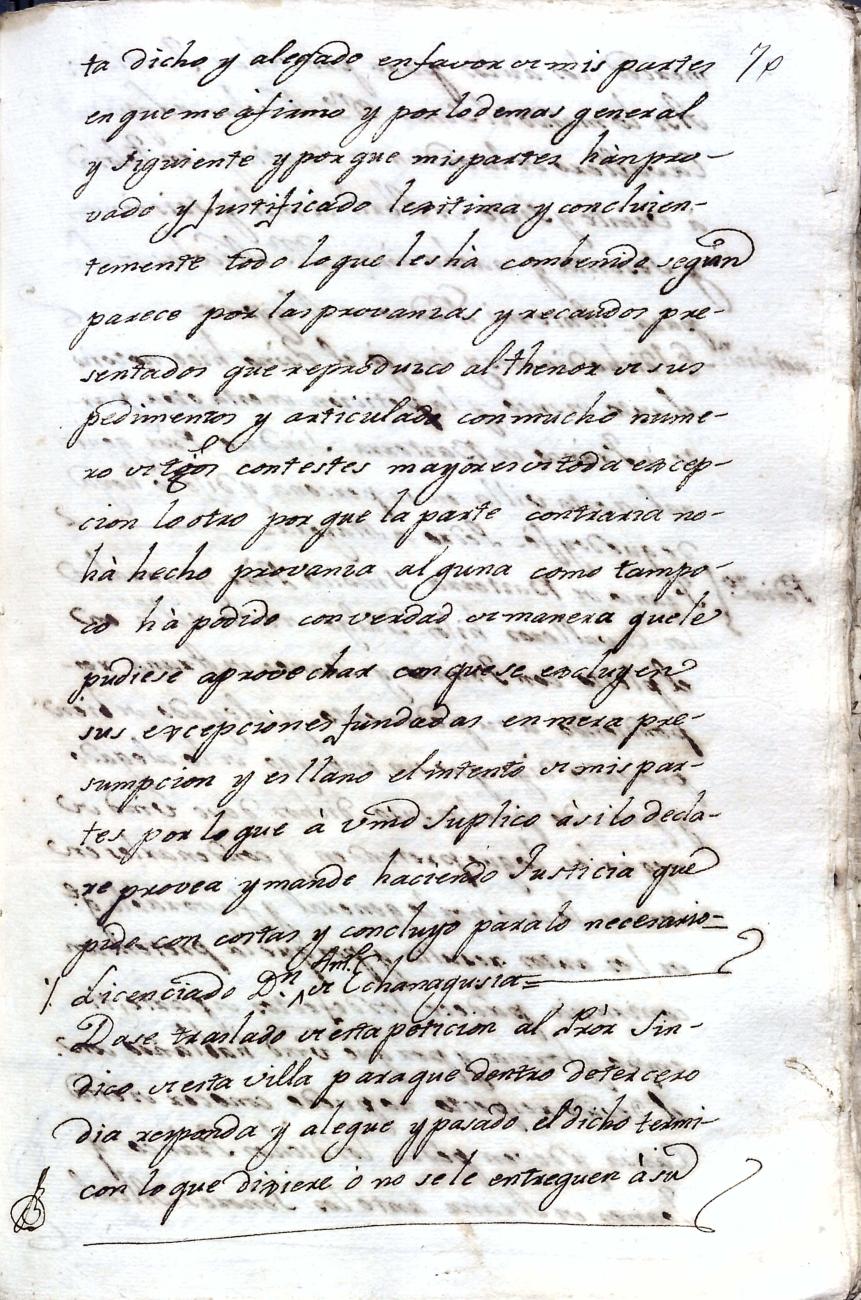 ta dicho y alegado en favor de mis partes 70
en que me àfirmo y por lo demas general
y siguiente y por que mis partes hàn pro-
vado y Justificado lexitima y concluien-
temente todo lo que les hà combenido según
parece por las provanzas y recaudos pre-
sentados que reproduzco al thenor de sus
pedimentos y articulado con mucho nume-
ro de tgôs contestes mayores de toda excep-
cion lo otro por que la parte contraria no-
hà hecho provanza alguna como tampo-
co hà podido con verdad de manera que lè
pudiese aprovechar con que se excluyen
sus excepciones fundadas en mera pre-
sumpcion y es llano el intento de mis par-
tes por lo que à vmd suplico àsi lo decla-
re provea y mande haciendo Justicia que
pido con costas y concluyo para lo necesario=
Licenciado Dn Antt. de Echanagusia=
Dase traslado de esta peticion al Pròr Sin-
dico de esta villa para que dentro de tercero
dia responda y alegue y pasado el dicho termi-
con lo que dixiere ò no se le entreguen à su